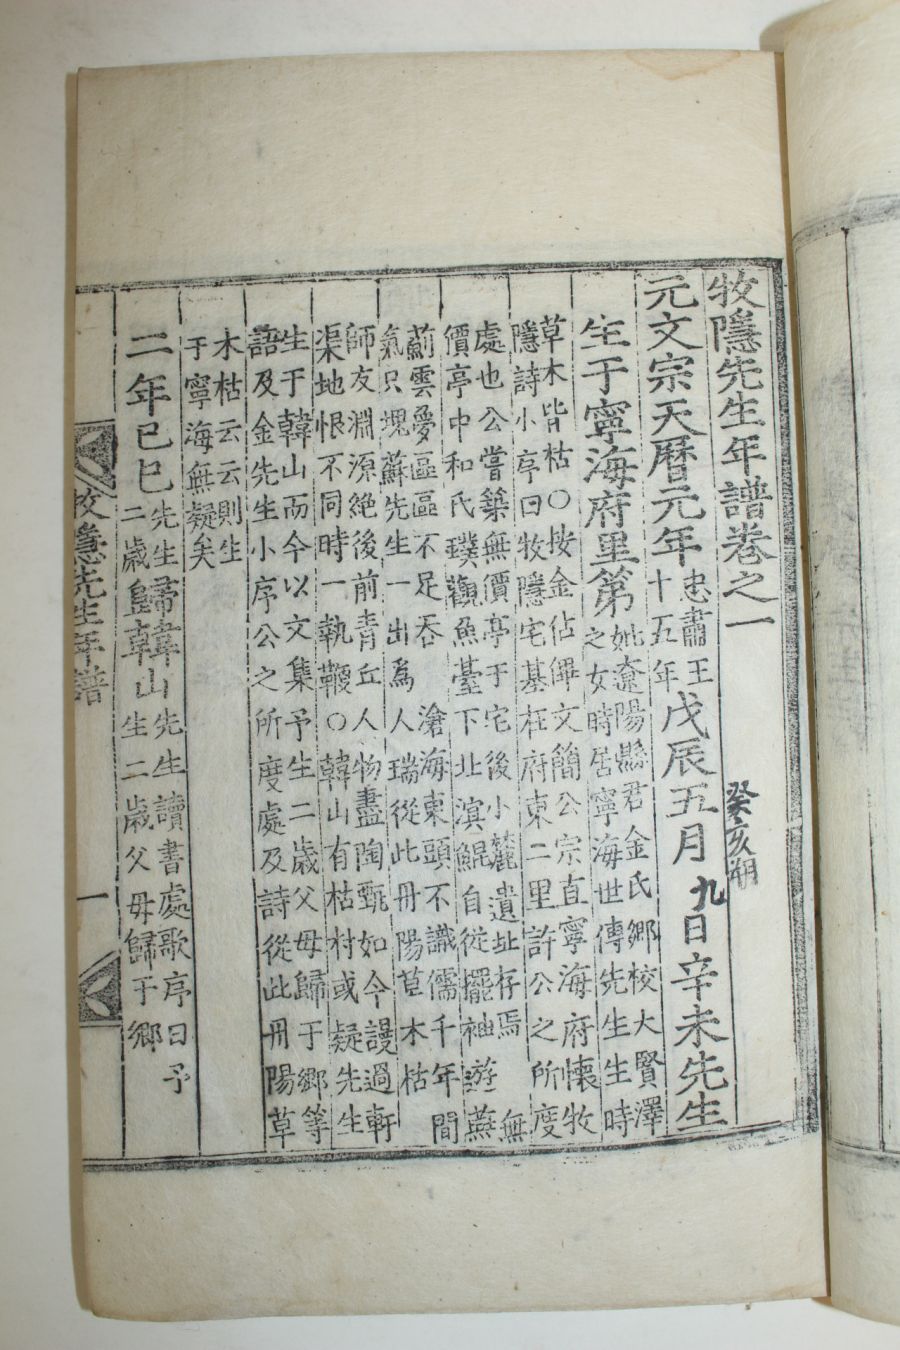 牧隱先生年譜卷之一
元文宗天曆元年忠肅王十五年戊辰五月癸亥朔九日辛未先生
生于寧海府里第妣遼陽縣君金氏鄉校大賢澤之女時居寧海世傳先生生時
草木皆枯○按金佔畢文簡公宗直寧海府懷牧
隱詩小序曰牧隱宅基在府東二里許公之所度
處也公嘗築無價亭于宅後小麓遺址存焉無
價亭中和氏璞觀魚臺下北溟鯤自從擺袖遊燕
薊雲夢區區不足吞 滄海東頭不識儒千年間
氣只塊蘇先生一出爲人瑞從此丹陽草木枯
師友淵源絶後前靑丘人物盡陶甄如今謾過軒
渠地恨不同時一執鞭○韓山有枯村或疑先生
生于韓山而今以文集予生二歲父母歸于鄉等
語及金先生小序公之所度處及詩從此丹陽草
木枯云云則生
于寧海無疑矣
二年己巳先生二歲歸韓山先生讀書處歌序曰予生二歲父母歸于鄉
牧隱先生年譜 一